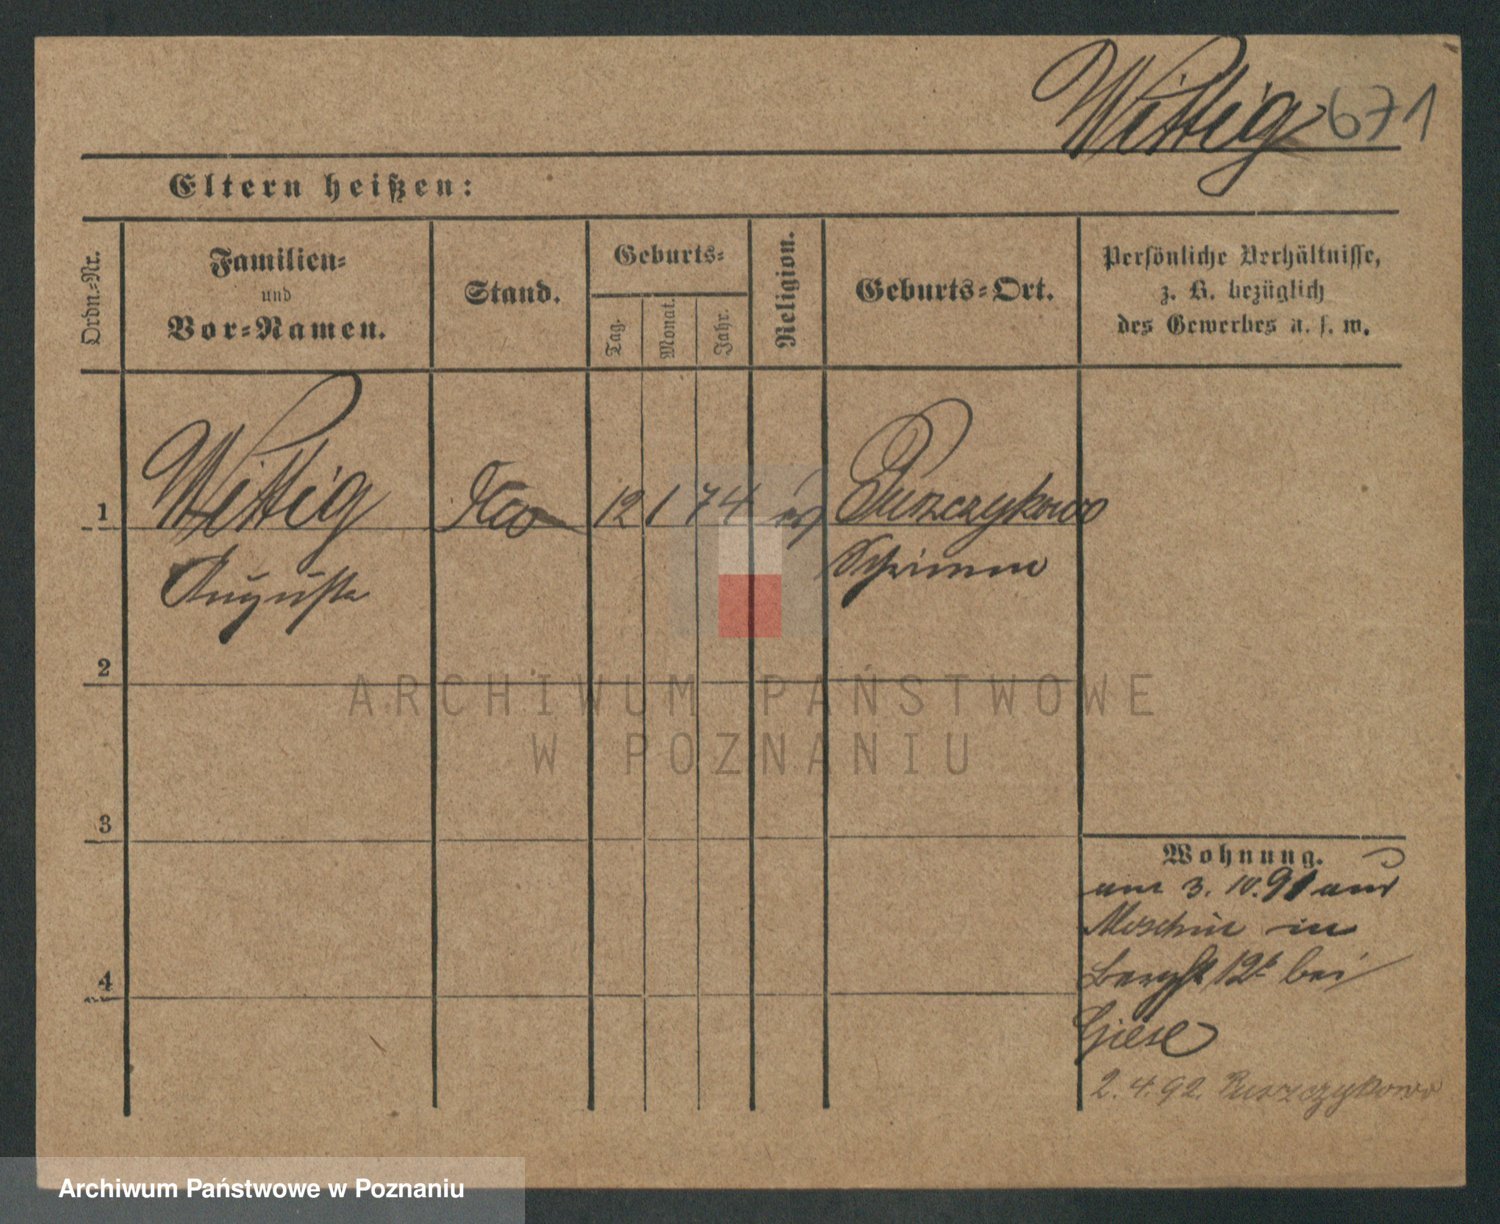 Wittig 671
Eltern heißen:
Ordn.-Nr.
Familien-
und
Vor-Namen.
Stand.
Geburts-
Tag.
Monat.
Jahr.
Religion.
Geburts-Ort.
Persönliche Verhältnisse,
z. B. bezüglich
des Gewerbes u. s. w.
1 Wittig 12 1 74 ev Puszczykowo
Auguste Schrimm
2
ARCHIWUM PAŃSTWOWE
W POZNANIU
3
Wohnung.
am 3. 10. 91 aus
Moschin in
Bergstr 12b bei
4
Giese
2.4.92. Puszczykowo
Archiwum Państwowe w Poznaniu